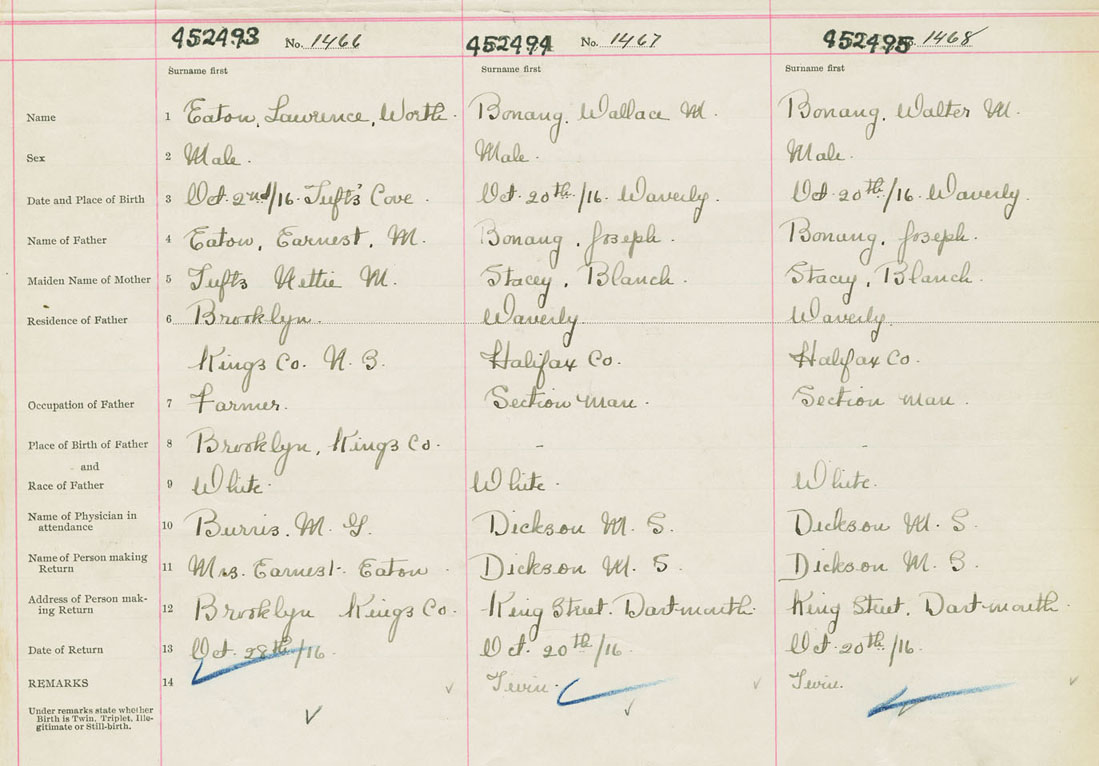 452493 No. 1466 452494 No. 1467 452495 1468
Surname first Surname first Surname first
Name 1 Eaton, Lawrence, Worth. Bonang, Wallace M. Bonang, Walter M.
Sex 2 Male. Male. Male.
Date and Place of Birth 3 Oct. 2nd/16. Tuft's Cove. Oct. 20th/16. Waverly. Oct. 20th/16. Waverly.
Name of Father 4 Eaton, Earnest, M. Bonang, Joseph. Bonang, Joseph.
Maiden Name of Mother 5 Tufts Nettie M. Stacey, Blanch. Stacey, Blanch.
Residence of Father 6 Brooklyn. Waverly Waverly.
Kings Co. N. S. Halifax Co. Halifax Co.
Occupation of Father 7 Farmer. Section Man. Section Man.
Place of Birth of Father 8 Brooklyn, Kings Co. - -
and
Race of Father 9 White. White. White.
Name of Physician in
attendance 10 Burris. M. G. Dickson M. S. Dickson M. S.
Name of Person making
Return 11 Mrs. Earnest. Eaton Dickson M. S. Dickson M. S.
Address of Person mak-
ing Return 12 Brooklyn Kings Co. King Street. Dartmouth. King Street. Dartmouth.
Date of Return 13 Oct. 28th/16. Oct. 20th/16. Oct. 20th/16.
REMARKS 14 Twin. Twin.
Under remarks state whether
Birth is Twin, Triplet, Ille-
gitimate or Still-birth.